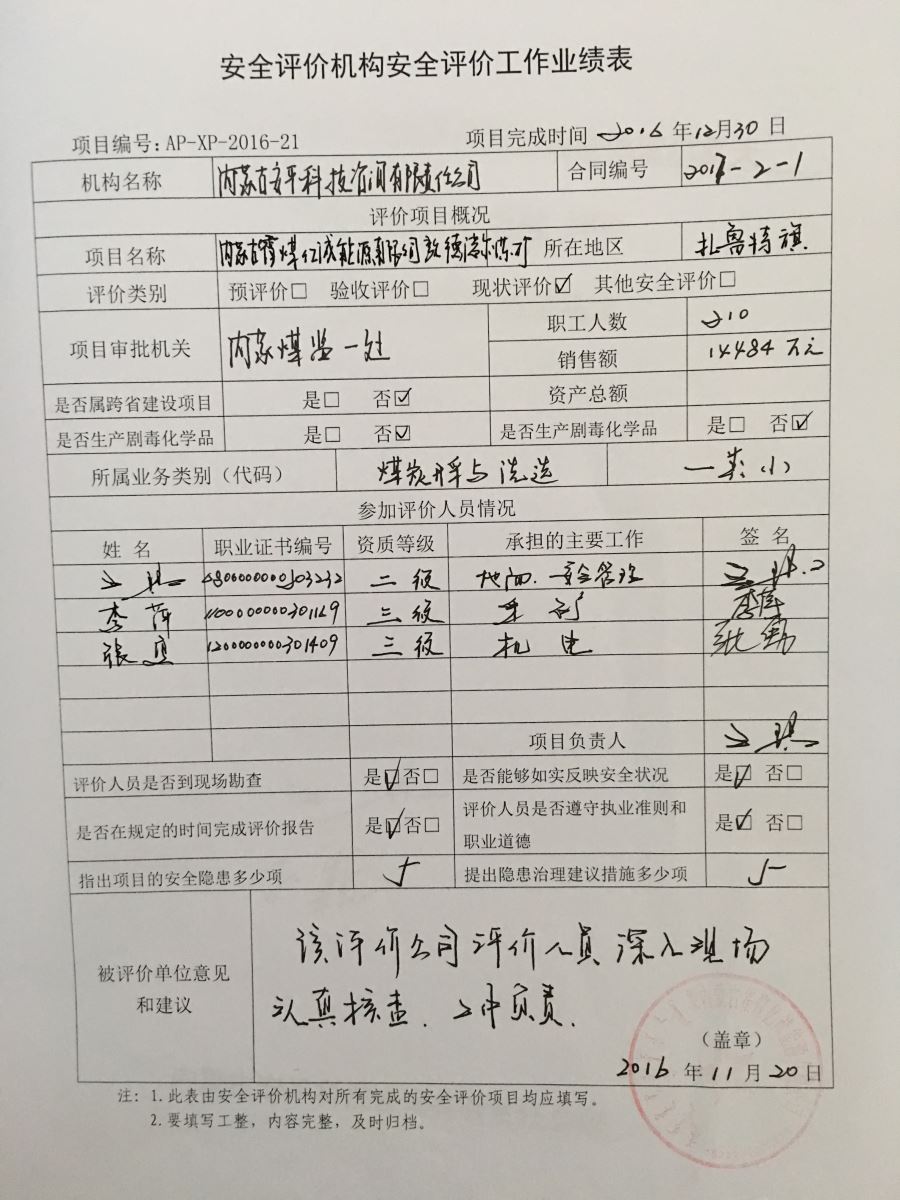 安全评价机构安全评价工作业绩表
项目编号：AP-XP-2016-21 项目完成时间 2016 年12月30 日
机构名称 内蒙古安平科技咨询有限责任公司 合同编号 2017-2-1
评价项目概况
项目名称 内蒙古霍煤亿诚能源有限公司 所在地区 扎鲁特旗
评价类别 预评价□ 验收评价□ 现状评价☑ 其他安全评价□
项目审批机关 内蒙煤监一处 职工人数 210
销售额 14484 万元
是否属跨省建设项目 是□ 否☑ 资产总额
是否生产剧毒化学品 是□ 否☑ 是否生产剧毒化学品 是□ 否☑
所属业务类别（代码） 煤炭开采与洗选 一类:小
参加评价人员情况
姓 名 职业证书编号 资质等级 承担的主要工作 签 名
二级 地面.安全管理
李萍 1100000000301129 三级 采矿 李萍
张勇 1200000000301409 三级 机电 张勇
项目负责人
评价人员是否到现场勘查 是☑否□ 是否能够如实反映安全状况 是☑ 否□
是否在规定的时间完成评价报告 是☑否□ 评价人员是否遵守执业准则和
职业道德 是☑ 否□
指出项目的安全隐患多少项 5 提出隐患治理建议措施多少项 5
被评价单位意见
和建议
该评价公司评价人员深入现场
认真核查.工作负责.
（盖章）
2016 年 11 月 20 日
注：1.此表由安全评价机构对所有完成的安全评价项目均应填写。
2.要填写工整，内容完整，及时归档。